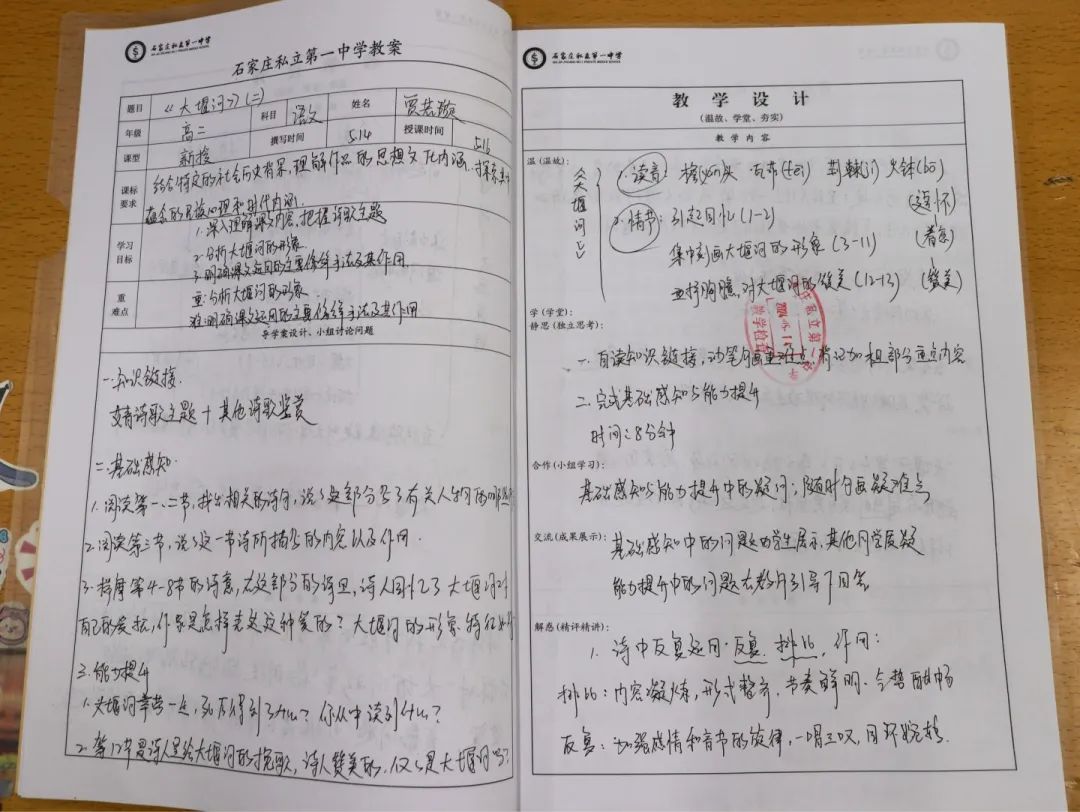 石家庄私立第一中学
石家庄私立第一中学教案
题目 《大堰河》(二) 科目 语文 姓名
年级 高二 撰写时间 5.14 授课时间 5.16
课型 新授
课标要求 结合特定的社会历史背景,理解作品的思想文化内涵,探索
蕴含的民族心理和时代内涵.
学习目标 1.深入理解课文内容,把握诗歌主题
2.分析大堰河的形象
3.明确课文运用的主要修辞手法及其作用.
重难点 重:分析大堰河的形象
难:明确课文运用的主要修辞手法及其作用
导学案设计、小组讨论问题
一.知识链接.
艾青诗歌主题 + 其他诗歌鉴赏
二.基础感知.
1.阅读第一、二节,找出相关的诗句,说说这部分写了有关人物的哪些
2.阅读第三节,说说这一节诗所描写的内容以及作用.
3.揣摩第4-8节的诗意,在这部分的诗里,诗人回忆了大堰河对
自己的关怀,作者是怎样表达这种爱的?大堰河的形象特征
三.能力提升
1.大堰河辛苦一生,死后得到了什么?你从中读到什么?
2.第12节是诗人呈给大堰河的挽歌,诗人赞美的,仅仅是大堰河吗?
石家庄私立第一中学
教 学 设 计
(温故、学堂、夯实)
教 学 内 容
温(温故):
《大堰河》
1.读音: 瓦菲(fēi) 荆棘(jí) 火钵(bō)
2.情节:引起回忆(1-2) (追怀)
集中刻画大堰河的形象(3-11)
直抒胸臆,对大堰河的赞美(12-13) (赞美)
学(学堂):
静思(独立思考):
一.自读知识链接,动笔勾画重难点,标记加粗部分重点内容
二.完成基础感知与能力提升
时间:8分钟
合作(小组学习):
基础感知与能力提升中的疑问;随时勾画疑难点
交流(成果展示):
基础感知中的问题由学生展示,其他同学质疑
能力提升中的问题在教师引导下回答
解惑(精评精讲):
1.诗中反复运用反复、排比,作用:
排比:内容凝炼,形式整齐,节奏鲜明,气势酣畅
反复:加强感情和音节的旋律,一唱三叹,回环婉转.